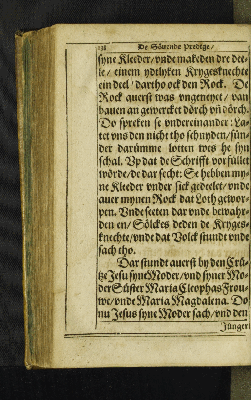 138 De Sövende Predige/
syne Kleder/ vnde makeden dre dee-
le/ einem ydtlyken Krygesknechte
ein deel/ dartho ock den Rock. De
Rock querst was vngeneyet/ van
bauen an gewercket dörch vñ dörch.
Do spreken se vndereinander: La-
tet vns den nicht tho schnyden/ sün-
der darümme lotten wes he syn
schal. Vp dat de Schrifft vorfüllet
wörde/ de dar secht: Se hebben my-
ne Kleder vnder sick gedeelet/ vnde
auer mynen Rock dat Loth gewor-
pen. Vnde seeten dar vnde bewahr-
den en/ Sölckes deden de Kryges-
knechte/ vnde dat Volck stundt vnde
sach tho.
Dar stundt auerst by den Crü-
tze Jesu syne Moder/ vnd syner Mo-
der Süster Maria Cleophas Frou-
we/ vnde Maria Magdalena. Do
nu Jesus syne Moder sach/ vnd den
Jünger